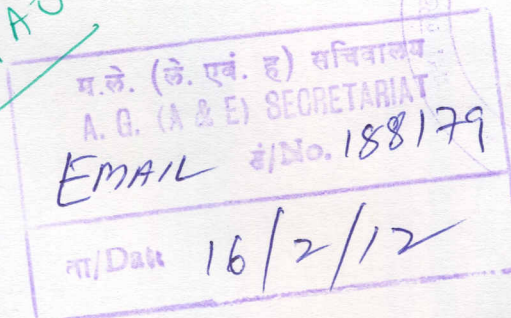 म.ले. (ले. एवं. ह) सचिवालय
A. G. (A & E) SECRETARIAT
EMAIL सं/No. 188179
ता/Date 16/2/12